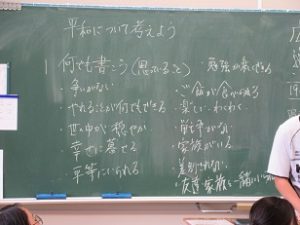 平和について考えよう
1 何でも書こう(思っていること)
・争いがない
・やれることが何でもできる
・世の中が穏やか
・幸せに暮せる
・平等にいられる
・勉強が楽しくできる
・ご飯が食べれる
・楽しい わくわく
・戦争がない
・家族がいる
・差別がない
・友達 家族と一緒にいられる